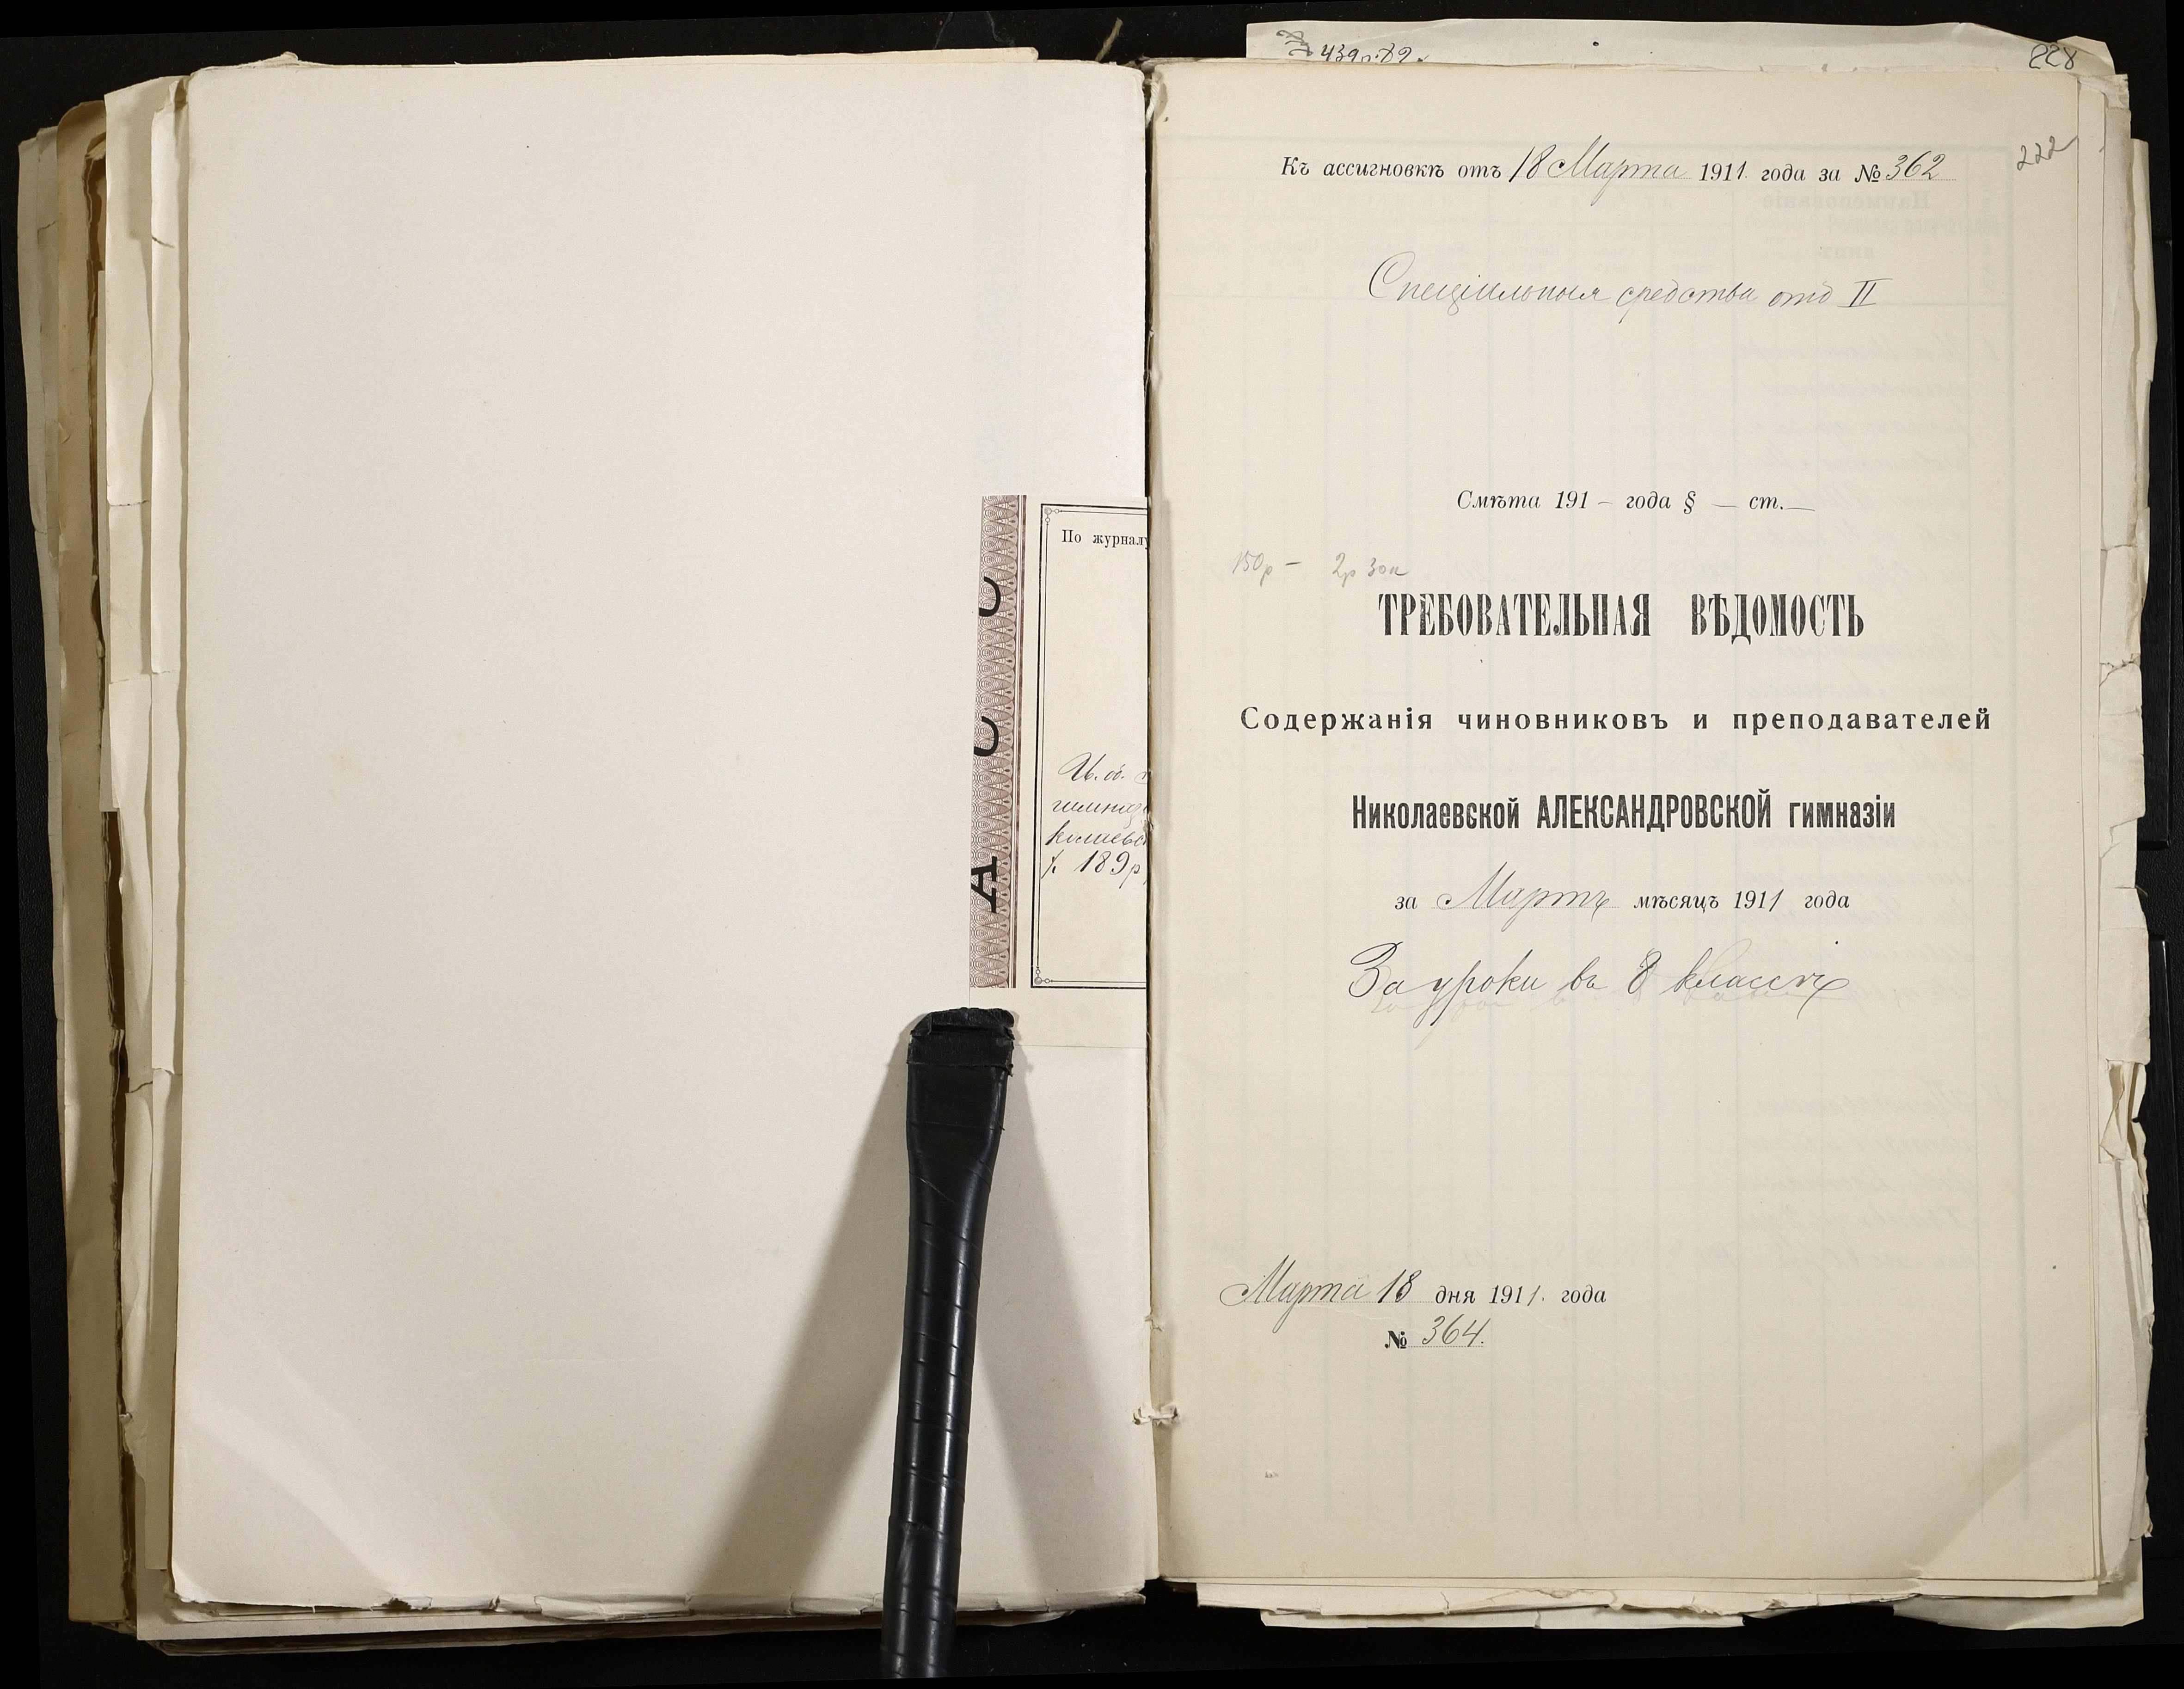 По журналу
И. об.
гимназ
колаевс
189 р
А С С
439 р. 82
228
222
Къ ассигновкѣ отъ 18 Марта 1911 года за № 362
Спеціальныя средства отд II
Смѣта 191 — года § — ст. —
150р — 2р 30к
ТРЕБОВАТЕЛЬНАЯ ВѢДОМОСТЬ
Содержанія чиновниковъ и преподавателей
Николаевской АЛЕКСАНДРОВСКОЙ гимназіи
за Мартъ мѣсяцъ 1911 года
За уроки въ 8 классѣ
Марта 18 дня 1911 года
№ 364.